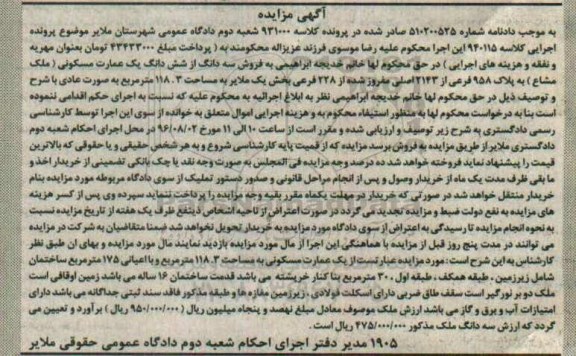 آگهی مزایده
به موجب دادنامه شماره ۵۱۰۲۰۰۵۲۵ صادر شده در پرونده کلاسه ۹۳۱۰۰۰ شعبه دوم دادگاه عمومی شهرستان ملایر موضوع پرونده
اجرایی کلاسه ۹۴۰۱۱۵ این اجرا محکوم علیه رضا موسوی فرزند عزیزاله محکومند به ( پرداخت مبلغ ۴۳۴۲۳۰۰۰ تومان بعنوان مهریه
و نفقه و هزینه های اجرایی ) در حق محکوم لها خانم خدیجه ابراهیمی به فروش سه دانگ از شش دانگ یک عمارت مسکونی ( ملک
مشاع ) به پلاک ۹۵۸ فرعی از ۲۱۴۳ اصلی مفروز شده از ۲۳۸ فرعی بخش یک ملایر به مساحت ۱۱۸.۳ مترمربع به صورت عادی با شرح
و توصیف ذیل در حق محکوم لها خانم خدیجه ابراهیمی نظر به ابلاغ اجرائیه به محکوم علیه که نسبت به اجرای حکم اقدامی ننموده
است بنا به درخواست محکوم لها به منظور استیفاء محکوم به و هزینه اجرایی اموال متعلق به خوانده از سوی این اجرا توسط کارشناسی
رسمی دادگستری به شرح زیر توصیف و ارزیابی شده و مقرر است از ساعت ۱۰ الی ۱۱ مورخ ۹۶/۰۸/۰۲ در محل اجرای احکام شعبه دوم
دادگستری ملایر از طریق مزایده به فروش برسد مزایده که از قمیت پایه کارشناسی شروع و به هر شخص حقیقی و یا حقوقی که بالاترین
قیمت را پیشنهاد نماید فروخته خواهد شد ده درصد وجه مزایده فی المجلس به صورت وجه نقد یا چک بانکی تضمینی از خریدار اخذ و
ما بقی ظرف مدت یک ماه از خریدار وصول و پس از انجام مراحل قانونی و صدور دستور تملیک از سوی دادگاه مربوطه مورد مزایده بنام
خریدار منتقل خواهد شد در صورتی که خریدار در مهلت یکماه مقرر بقیه وجه مزایده را پرداخت ننماید سپرده وی پس از کسر هزینه
های مزایده به نفع دولت ضبط و مزایده تجدید می گردد در صورت اعتراض از ناحیه اشخاص ذینفع ظرف یک هفته از تاریخ مزایده نسبت
به نحوه انجام مزایده تا رسیدگی به اعتراض از سوی دادگاه مورد مزایده به خریدار تحویل نخواهد شد ضمنا متقاضیان به شرکت در مزایده
می توانند در مدت پنج روز قبل از مزایده با هماهنگی این اجرا از مال مورد مزایده بازدید نمایند مال مورد مزایده و بهای ان طبق نظر
کارشناس به این شرح است : مورد مزایده عبارتست از یک عمارت مسکونی به مساحت ۱۱۸.۳ مترمربع و با اعیانی ۱۷۵ مترمربع ساختمان
شامل زیرزمین . طبقه همکف . طبقه اول . ۳۰ مترمربع بنا کنار خریشته می باشد قدمت ساختمان ۱۶ ساله می باشد زمین اوقافی است
ملک دو بر نورگیر است سقف طاق ضربی دارای اسکلت فولادی . زیرزمین مغازه ها و طبقه مذکور فاقد سند ثبتی جداگانه می باشد دارای
امتیازات آب و برق و گاز می باشد ارزش ملک موصوف معادل مبلغ نهصد و پنجاه میلیون ریال ( ۹۵۰/۰۰۰/۰۰۰ ریال ) برآورد و تعیین می
گردد که ارزش سه دانگ ملک مذکور ۴۷۵/۰۰۰/۰۰۰ ریال است .
۱۹۰۵ مدیر دفتر اجرای احکام شعبه دوم دادگاه عمومی حقوقی ملایر